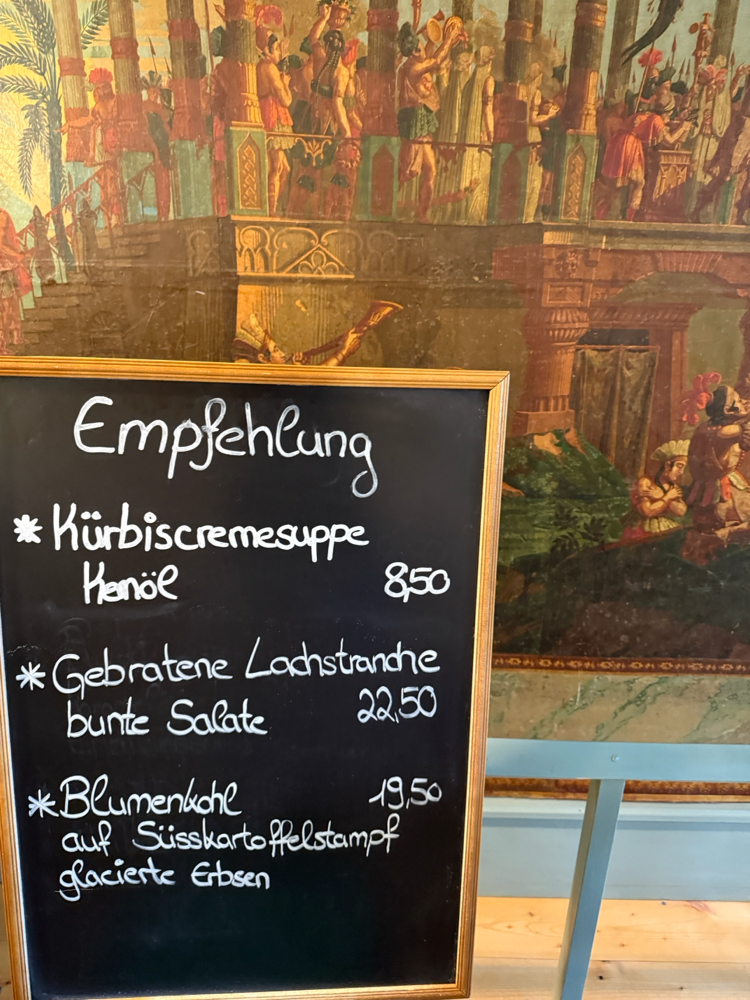 Empfehlung
* Kürbiscremesuppe
Kernöl 8,50
* Gebratene Lachstranche
bunte Salate 22,50
* Blumenkohl 19,50
auf Süsskartoffelstampf
glacierte Erbsen